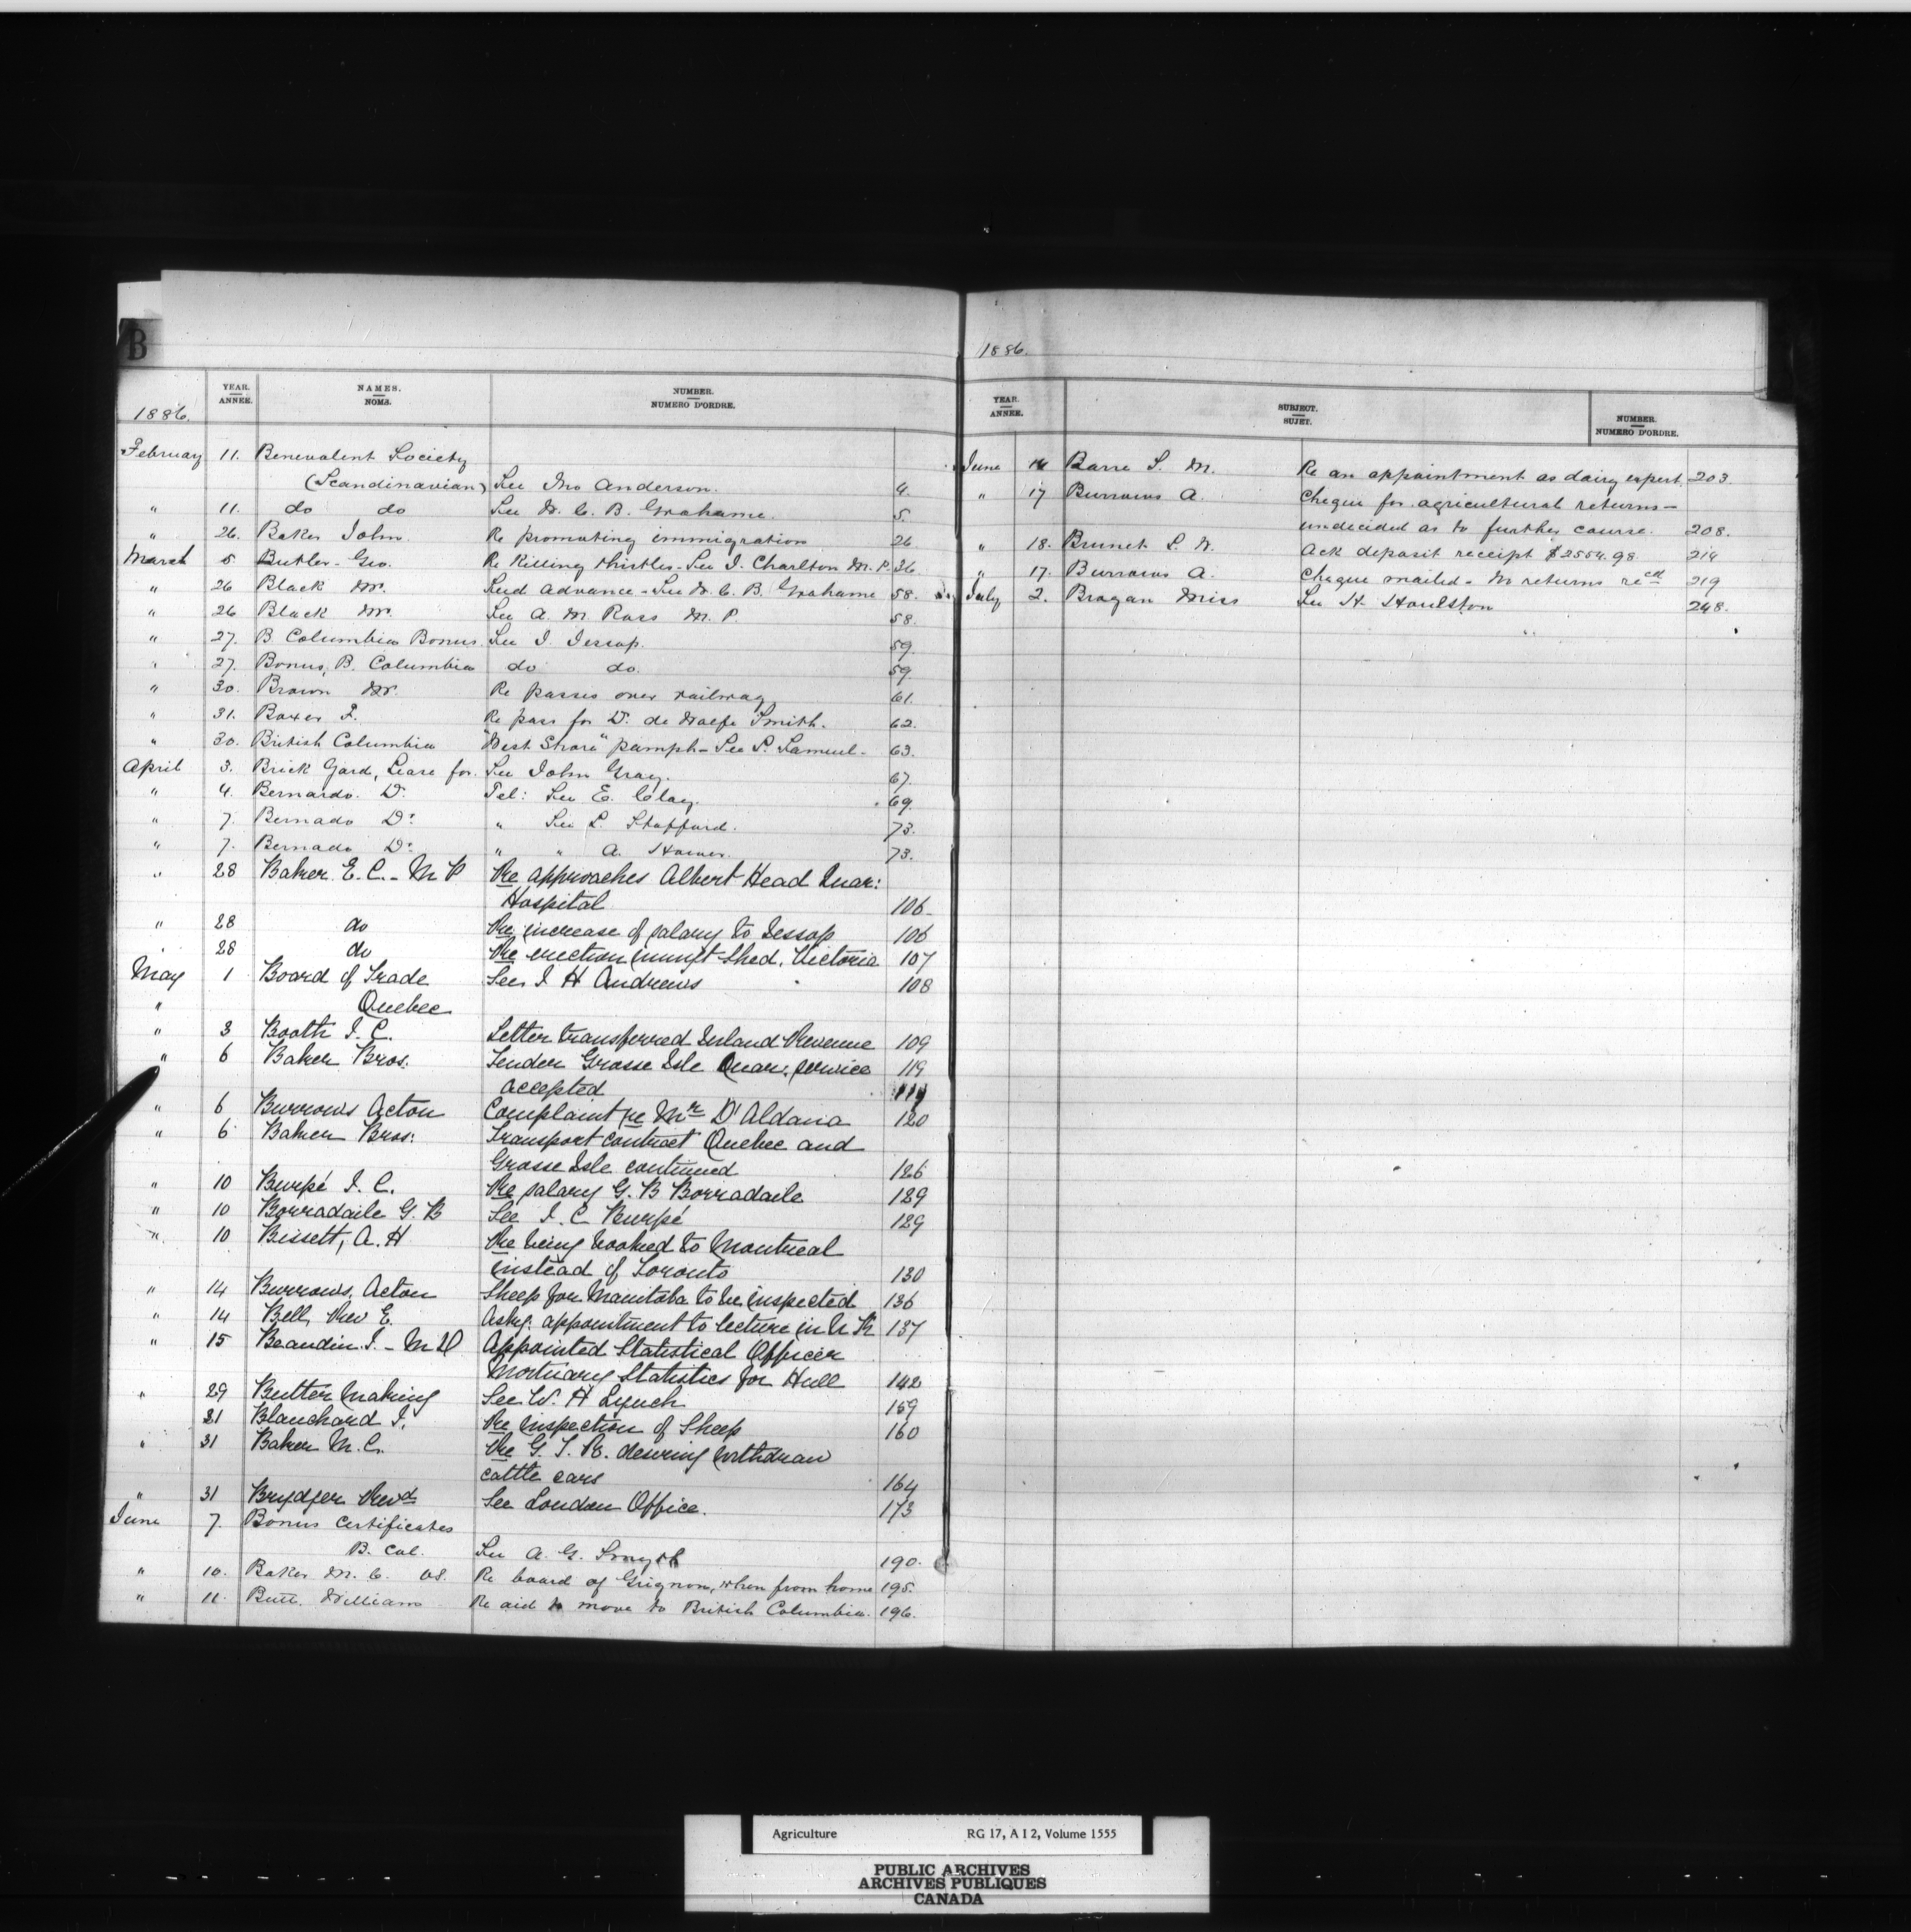 B
1886.
YEAR. ANNEE. NAMES. NOMS. NUMBER. NUMERO D'ORDRE.
1886.
February 11. Benevolent Society
(Scandinavian) See Jno Anderson. 4.
" 11. do do See W. C. B. Grahame. 5.
" 26. Baker John. Re promoting immigration 26
March 5 Butler - Geo. Re Killing thistles - See J. Charlton M. P. 36
" 26 Black Mr. Seed advance - See W. C. B. Grahame 58.
" 26 Black Mr. See A. M. Ross M. P. 58.
" 27. B Columbia Bonus. See J. Jessop. 59.
" 27. Bonus, B. Columbia do do. 59.
" 30. Brown Mr. Re passes over railway 61.
" 31. Boxer F. Re pass for D. de Wolfe Smith. 62.
" 30. British Columbia "West Shore" pamph - See L. Samuel - 63.
April 3. Brick Yard, Lease for. See John Gray. 67.
" 4. Bernardo. Dr. Tel: See E. Clay. 69.
" 7. Bernado Dr. " See L. Stafford. 73.
" 7. Bernado Dr. " " A. 73.
" 28 Baker E. C. - M P Re approaches Albert Head Quar:
Hospital 106.
" 28 do Re increase of salary to Jessop 106
" 28 do Re erection immgt Shed, Victoria 107
May 1 Board of Trade See J H Andrews 108
" Quebec
" 3 Booth J. C. Letter transferred Inland Revenue 109
" 6 Baker Bros. Tender Grosse Isle Quar. service 119
accepted 119
" 6 Burrows Acton Complaint re Mr D'Aldana 120
" 6 Baker Bros: Transport contract Quebec and
Grosse Isle continued 126
" 10 Burpé J. C. Re salary G. B Borradaile 129
" 10 Borradaile G. B See J. C Burpé 129
" 10 Bissett, A. H Re being booked to Montreal
instead of Toronto 130
" 14 Burrows, Acton Sheep for Manitoba to be inspected 136
" 14 Bell, Rev E. Askg. appointment to lecture in U K 137
" 15 Beaudin J. - M D Appointed Statistical Officer
Mortuary Statistics for Hull 142
" 29 Butter Making See W. H Lynch 159
31 Blanchard J. Re inspection of Sheep 160
" 31 Baker M. C. Re G. T. R. desiring withdraw
cattle cars 164
" 31 Brydger Revd See London Office. 173
June 7. Bonus Certificates
B. Col. See A. G. Smyth 190.
" 10. Baker M. C. VS. Re board of Grignon, when from home 195.
" 11. William Re aid to move to British Columbia. 196.
1886.
YEAR. ANNEE. SUBJECT. SUJET. NUMBER. NUMERO D'ORDRE.
June Barre S. M. Re an appointment as dairy expert. 203.
" 17 Burrows A. Cheque for agricultural returns -
undecided as to further course. 208.
" 18. Brunet L. N. Ack deposit receipt $2554.98 214
" 17. Burrows A. Cheque mailed - No returns recd 219
July 2. Brogan Miss See H. Houlston 248.
Agriculture RG 17, A I 2, Volume 1555
PUBLIC ARCHIVES
ARCHIVES PUBLIQUES
CANADA